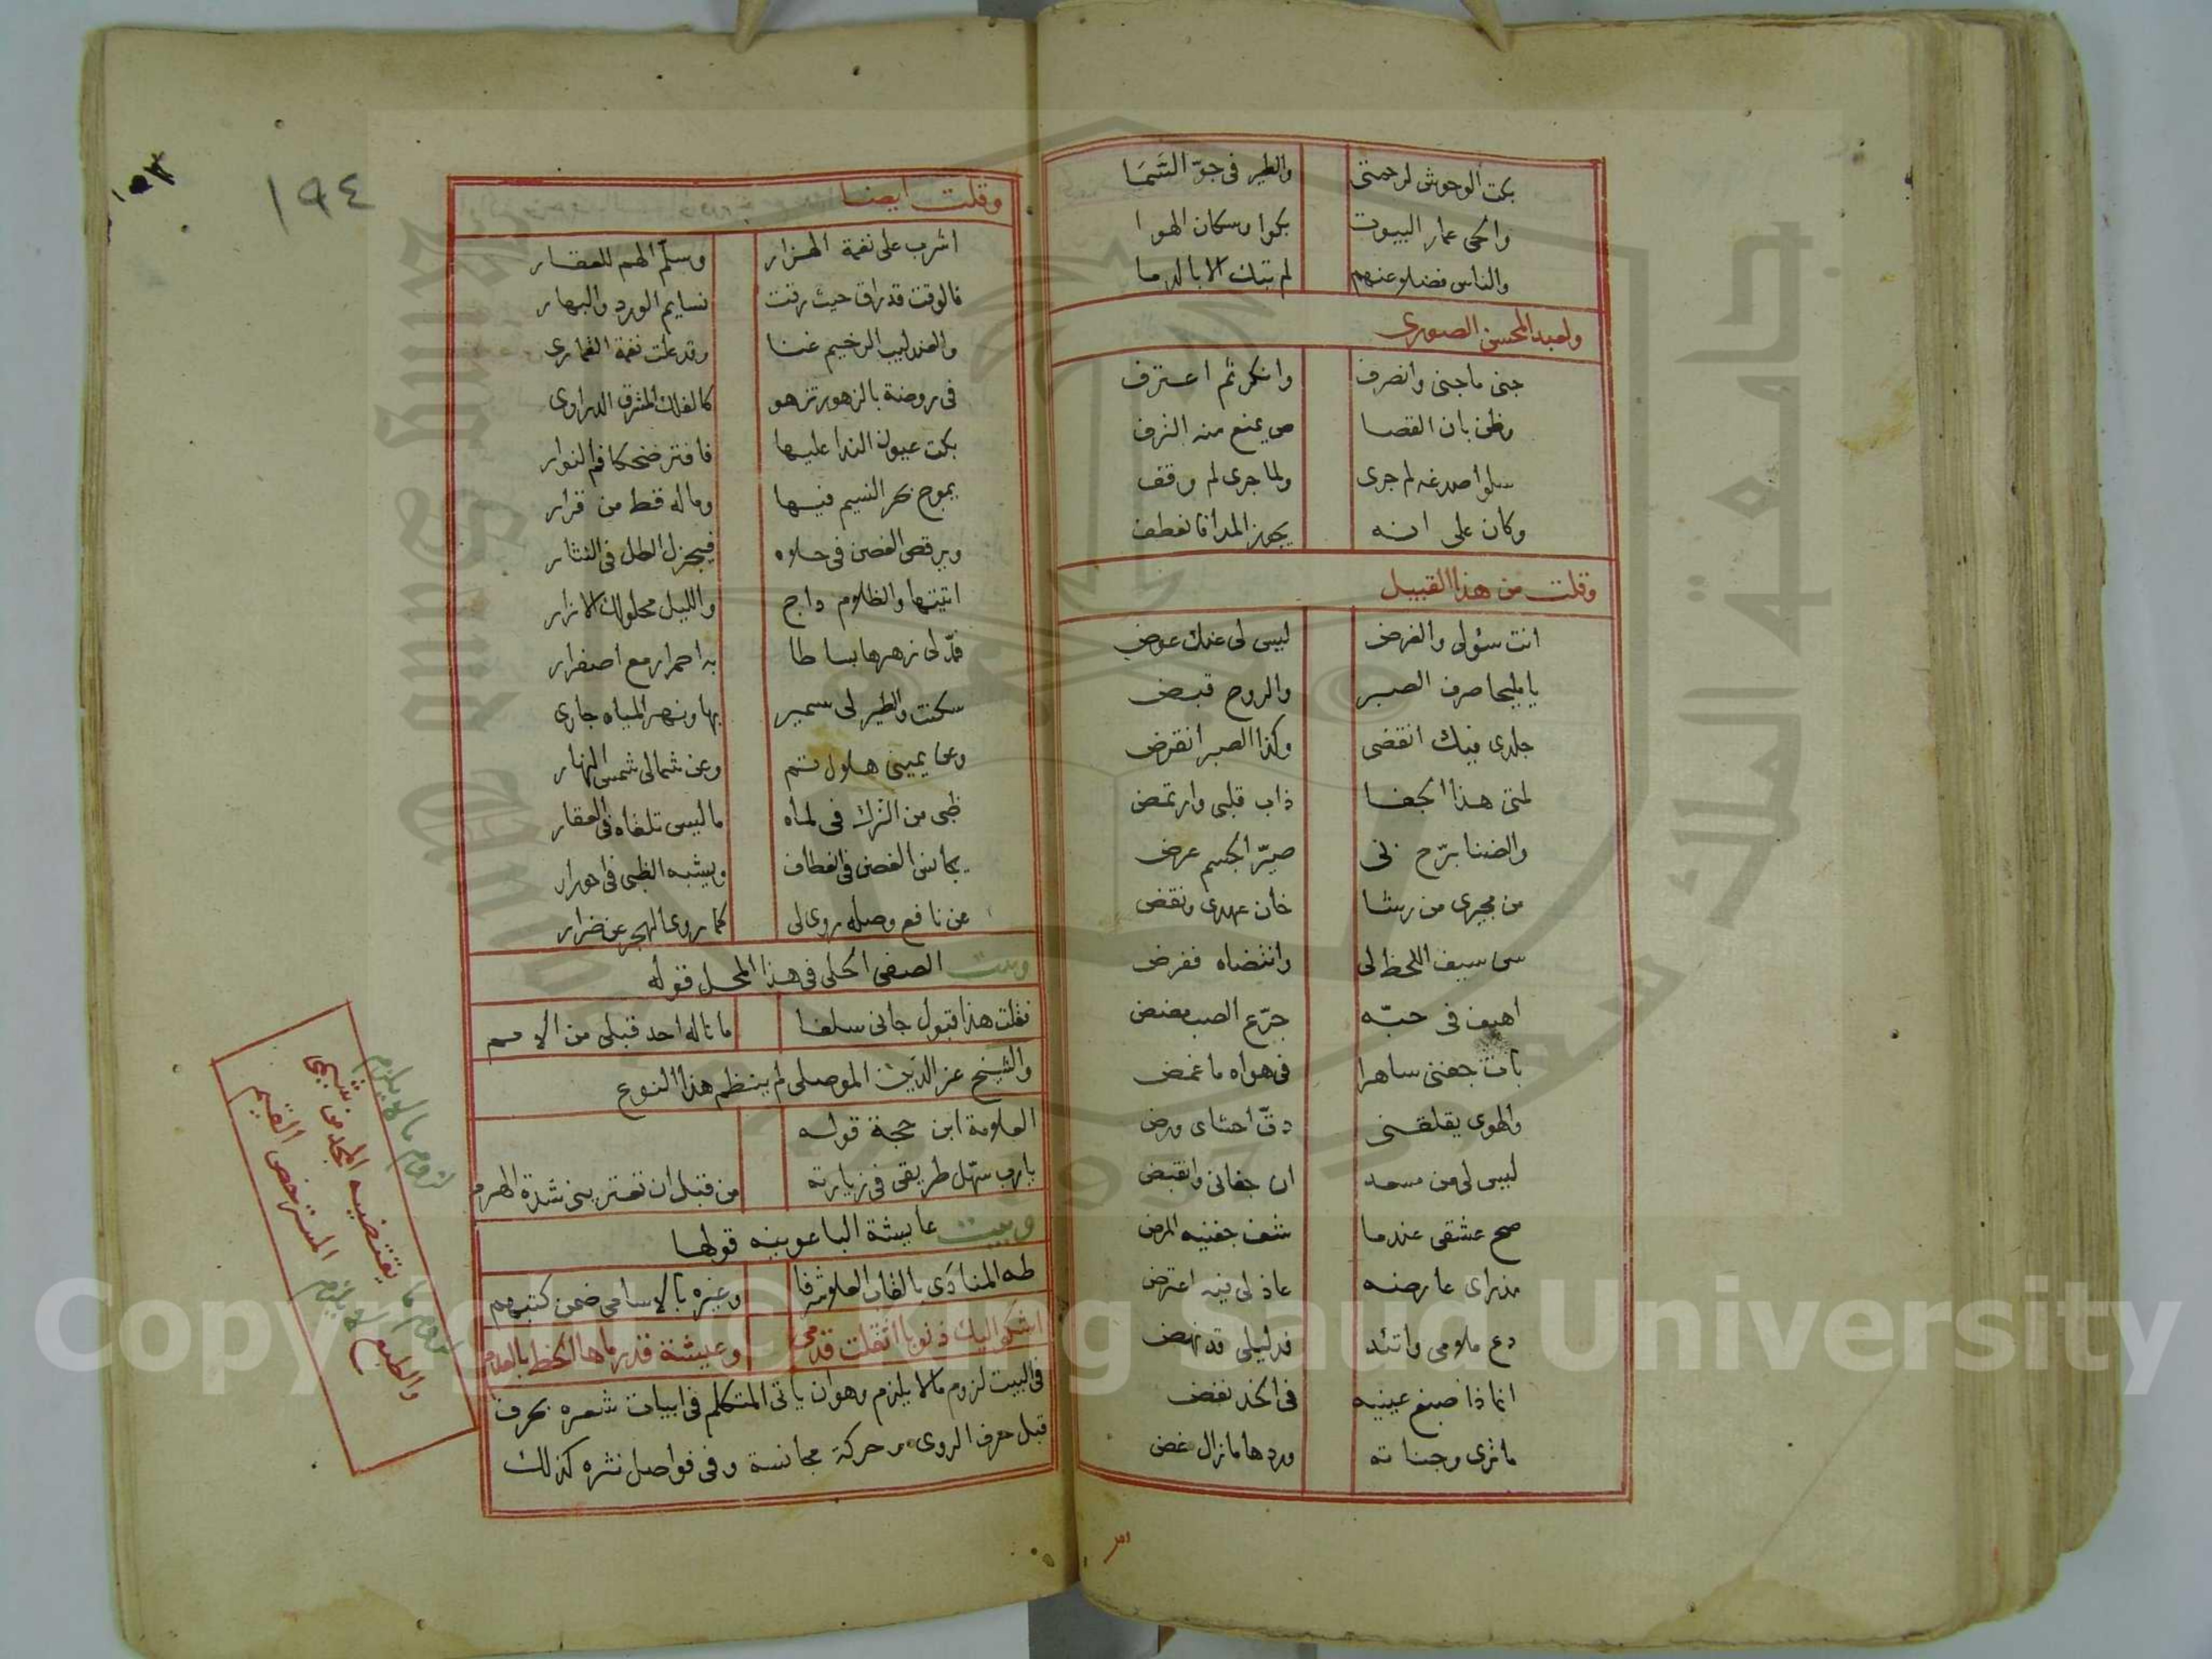 بكت الوحوش لرحمتي والطير في جوّ السَّمَا
والحي عمار البيوت بكوا وسكان الهوا
والناس فضلا عنهم لم تبك الا بالدما
ولعبد المحسن الصورى
جنى ما جنى وانصرف وانكر ثم اعترف
وظن بان القصا ص يمنع منه الترف
سلوا صدغه لم جرى ولما جرى لم وقف
وكان على انه يجوز المدا فانعطف
وقلت من هذا القبيل
انت سؤلى والغرض ليس لى عنك عوض
يا مليحا صرف الصبر والروح قبض
جلدى فيك انقضى وكذا الصبر انقرض
لمتى هذا الجفا ذاب قلبى وارتمض
والضنا برّح بى صيّر الجسم عرض
من مجيرى من رشا خان عهدى ونقض
سن سيف اللحظ لى وانتضاه ففرض
اهيف فى حبّه جرّع الصب مضض
بات جفنى ساهرا فى هواه ما غمض
والهوى يقلقنى دقّ احشاى ورض
ليس لى من مسعد ان جفانى وانقبض
صح عشقى عندما شف جفنيه المرض
مذ راى عارضه عاذلى فيه اعترض
دع ملامى واتئد فدليلى قد نهض
انما ذا صبغ عينيه فى الخد نفض
ما ترى وجناته وردها ما زال غض
١٩٤
١٥٣
وقلت ايضا
اشرب على نغمة الهزار وسلّم الهم للعقار
فالوقت قد راق حيث رقت نسايم الورد والبهار
والعندليب الرخيم غنا وقد علت نغمة القمارى
فى روضة بالزهور تزهو كالفلك المشرق الدرارى
بكت عيون الندا عليها فافتر ضحكا فم النوار
يموج بحر النسيم فيها وما له قط من قرار
ويرقص الغصن فى حلاه فيجزل الطل فى النثار
اتيتها والظلام داج والليل محلولك الازار
فمدّ لى زهرها بساطا به احمرار مع اصفرار
سكنت والطير لى سمير بها ونهر المياه جارى
وعن يمينى هلال تم وعن شمالى شمس النهار
ظبى من الترك فى لماه ما ليس تلقاه فى العقار
يجانس الغصن فى انعطاف ويشبه الظبى فى احورار
عن نافع وصله روى لى كما روى الهجر عن ضرار
وبيت الصفى الحلى فى هذا المحل قوله
نقلت هذا قبول جانى سلفا ما ناله احد قبلى من الامم
والشيخ عز الدين الموصلى لم ينظم هذا النوع
العلامة ابن حجة قوله
يارب سهّل طريقى فى زيارته من قبل ان تعترينى شدة الهرم
وبيت عايشة الباعونيه قولها
طه المنادَى بالقاب العلا شرفا وغيره بالاسامى ضمن كتبهم
اشكو اليك ذنوبا اثقلت قدمى وعيشة قدرماها الحظ بالعدم
فى البيت لزوم ما لا يلزم وهو ان ياتى المتكلم فى ابيات شعره بحرف
قبل حرف الروى مر حركة مجانسة وفى فواصل نثره كذلك
لزوم ما لا يلزم